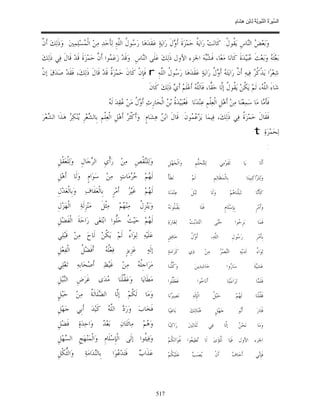 السِّيرَةُ النَّبَوِيَّةُ لابْنِ هِشَامٍ
وَبَعْضُ النَّاسِ يَقُولُ: كَانَتْ رَايَةُ حَمْزَةَ أَوَّلَ رَايَةٍ عَقَدَهَا رَسُولُ اللَّهِ لِأَحَدِ مِنْ الْمُسْلِمِينَ. وَذَلِكَ أَنَّ
بَعْثَهُ وَبَعْثَ عُبَيْدَةَ كَانَا مَعًا، فَشُبِّهَ الجزء الأول ذَلِكَ عَلَى النَّاسِ. وَقَدْ زَعَمُوا أَنَّ حَمْزَةَ قَدْ قَالَ فِي ذَلِكَ
شِعْرًا يَذْكُرُ فِيهِ أَنَّ رَايَتَهُ أَوَّلُ رَايَةٍ عَقَدَهَا رَسُولُ اللَّهِ فَإِنْ كَانَ حَمْزَةُ قَدْ قَالَ ذَلِكَ، فَقَدْ صَدَقَ إنْ
شَاءَ اللَّهُ، لَمْ يَكُنْ يَقُولُ إلَّا حَقًّا، فَاَللَّهُ أَعْلَمُ أَيُّ ذَلِكَ كَانَ
فَأَمَّا مَا سَمِعْنَا مِنْ أَهْلِ الْعِلْمِ عِنْدَنَا. فَعُبَيْدَةُ بْنُ الْحَارِثِ أَوَّلُ مَنْ عُقِدَ لَهُ
فَقَالَ حَمْزَةُ فِي ذَلِكَ، فِيمَا يَزْعُمُونَ: قَالَ ابْنُ هِشَامٍ: وَأَكْثَرُ أَهْلِ الْعِلْمِ بِالشِّعْرِ يُنْكِرُ هَذَا الشِّعْرَ
لِحَمْزَةَ
أَلَا يَا لَقَوْمِي لِلتَّحَلُّمِ وَالْجَهْلِ وَلِلنَّقْصِ مِنْ رَأْيِ الرِّجَالِ وَلِلْعَقْلِ
وَلِلرَّاكِبِينَا بِالْمَظَالِمِ لَمْ نَطَأْ لَهُمْ حُرُمَاتٍ مِنْ سَوَامٍ وَلَا أَهْلِ
كَأَنَّا تَبَلْنَاهُمْ وَلَا تَبْلَ عِنْدَنَا لَهُمْ غَيْرُ أَمْرٍ بِالْعَفَافِ وَبِالْعَدْلِ
وَأَمْرٍ بِإِسْلَامٍ فَلَا يَقْبَلُونَهُ وَيَنْزِلُ مِنْهُمْ مِثْلَ مَنْزِلَةِ الْهَزْلِ
فَمَا بَرِحُوا حَتَّى انْتَدَبْتُ لِغَارَةٍ لَهُمْ حَيْثُ حَلُّوا ابْتَغَى رَاحَةَ الْفَضْلِ
بِأَمْرِ رَسُولِ اللَّهِ، أَوَّلُ خَافِقٍ عَلَيْهِ لِوَاءٌ لَمْ يَكُنْ لَاحَ مِنْ قَبْلِي
لِوَاءٌ لَدَيْهِ النَّصْرُ مِنْ ذِي كَرَامَةٍ إلَهٍ عَزِيزٍ فِعْلُهُ أَفْضَلُ الْفِعْلِ
عَشِيَّةَ سَارُوا حَاشِدِينَ وَكُلُّنَا مَرَاجِلُهُ مِنْ غَيْظِ أَصْحَابِهِ تَغْلِي
فَلَمَّا تَرَاءَيْنَا أَنَاخُوا فَعَقَّلُوا مَطَايَا وَعَقَّلْنَا مُدَى غَرَضِ النَّبْلِ
فَقُلْنَا لَهُمْ حَبْلُ الْإِلَهِ نَصِيرُنَا وَمَا لَكُمْ إلَّا الضَّلَالَةُ مِنْ حَبْلِ
فَثَارَ أَبُو جَهْلٍ هُنَالِكَ بَاغِيًا فَخَابَ وَرَدَّ اللَّهُ كَيْدَ أَبِي جَهْلِ
وَمَا نَحْنُ إلَّا فِي ثَلَاثِينَ رَاكِبًا وَهُمْ مِائَتَانِ بَعْدُ وَاحِدَةٍ فَضْلِ
الجزء الأول فَيَا لَلُؤَيٍّ لَا تُطِيعُوا غُوَاتَكُمْ وَفِيئُوا إلَى الْإِسْلَامِ وَالْمَنْهَجِ السَّهْلِ
فَإِنِّي أَخَافُ أَنْ يُصَبَّ عَلَيْكُمْ عَذَابٌ فَتَدْعُوا بِالنَّدَامَةِ وَالثُّكْلِ
517